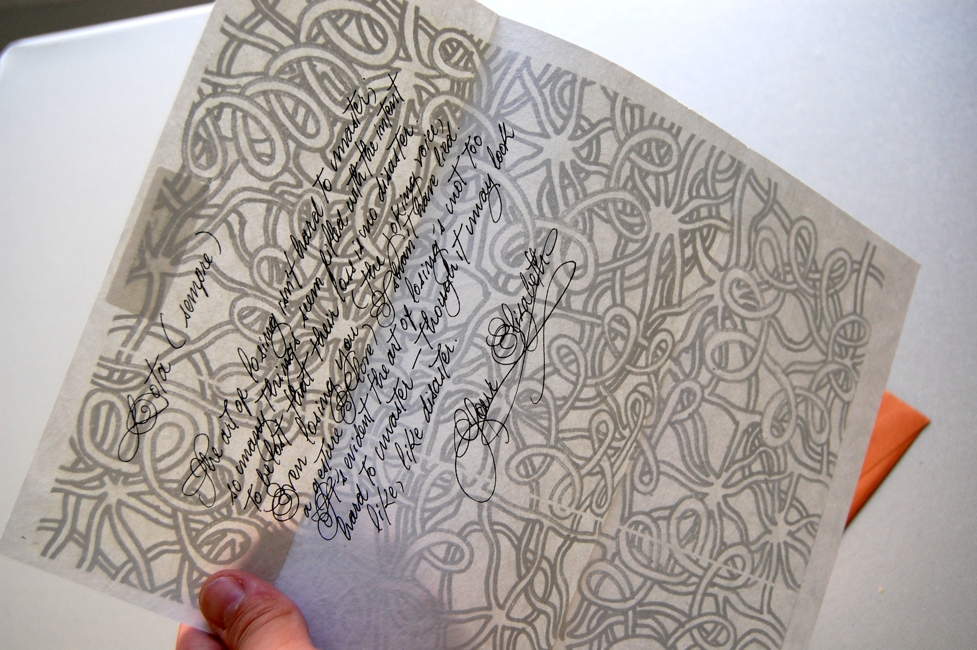 Lota (sempre)
The art of losing isn't hard to master;
so many things seem filled with the intent
to be lost that their loss is no disaster.
Even losing you (the joking voice,
a gesture I love) I shan't have lied.
It's evident the art of losing's not too
hard to master – though it may look
like, like disaster.
Elizabeth